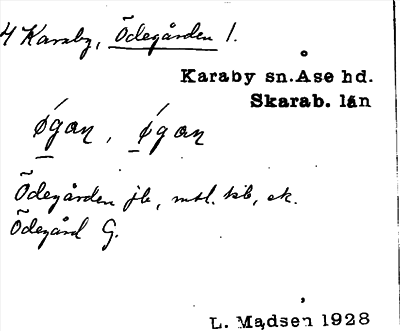 4 Karaby, Ödegården 1.
Karaby sn. Åse hd.
Skarab. län
ǿgan, ǿgan
Ödegården jb, mtl. kb, ek.
Ödegård G.
L. Madsen 1928